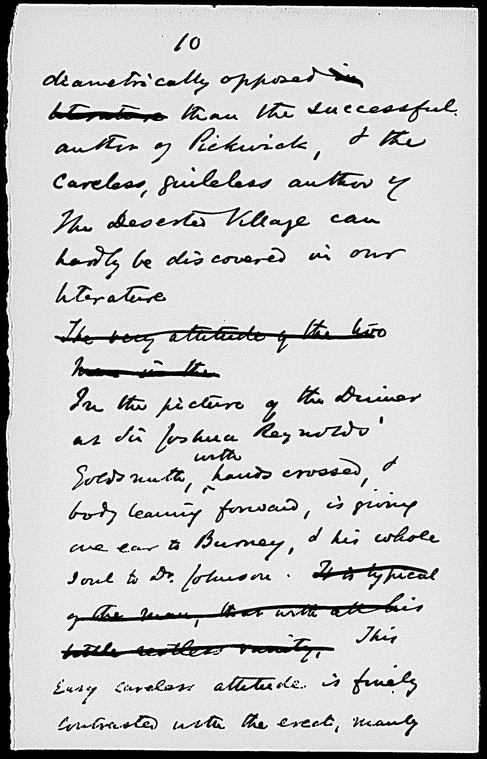 10
diametrically opposed in
literature than the successful
author of Pickwick, & the
careless, guileless author of
The Deserted Village can
hardly be discovered in our
literature
The very attitude of the two
men in the
In the picture of the Dinner
at Sir Joshua Reynolds'
with
Goldsmith, hands crossed, &
body leaning forward, is giving
one ear to Burney, & his whole
soul to Dr. Johnson. It is typical
of the man, that with all his
little restless vanity. This
easy careless attitude is finely
contrasted with the erect, manly